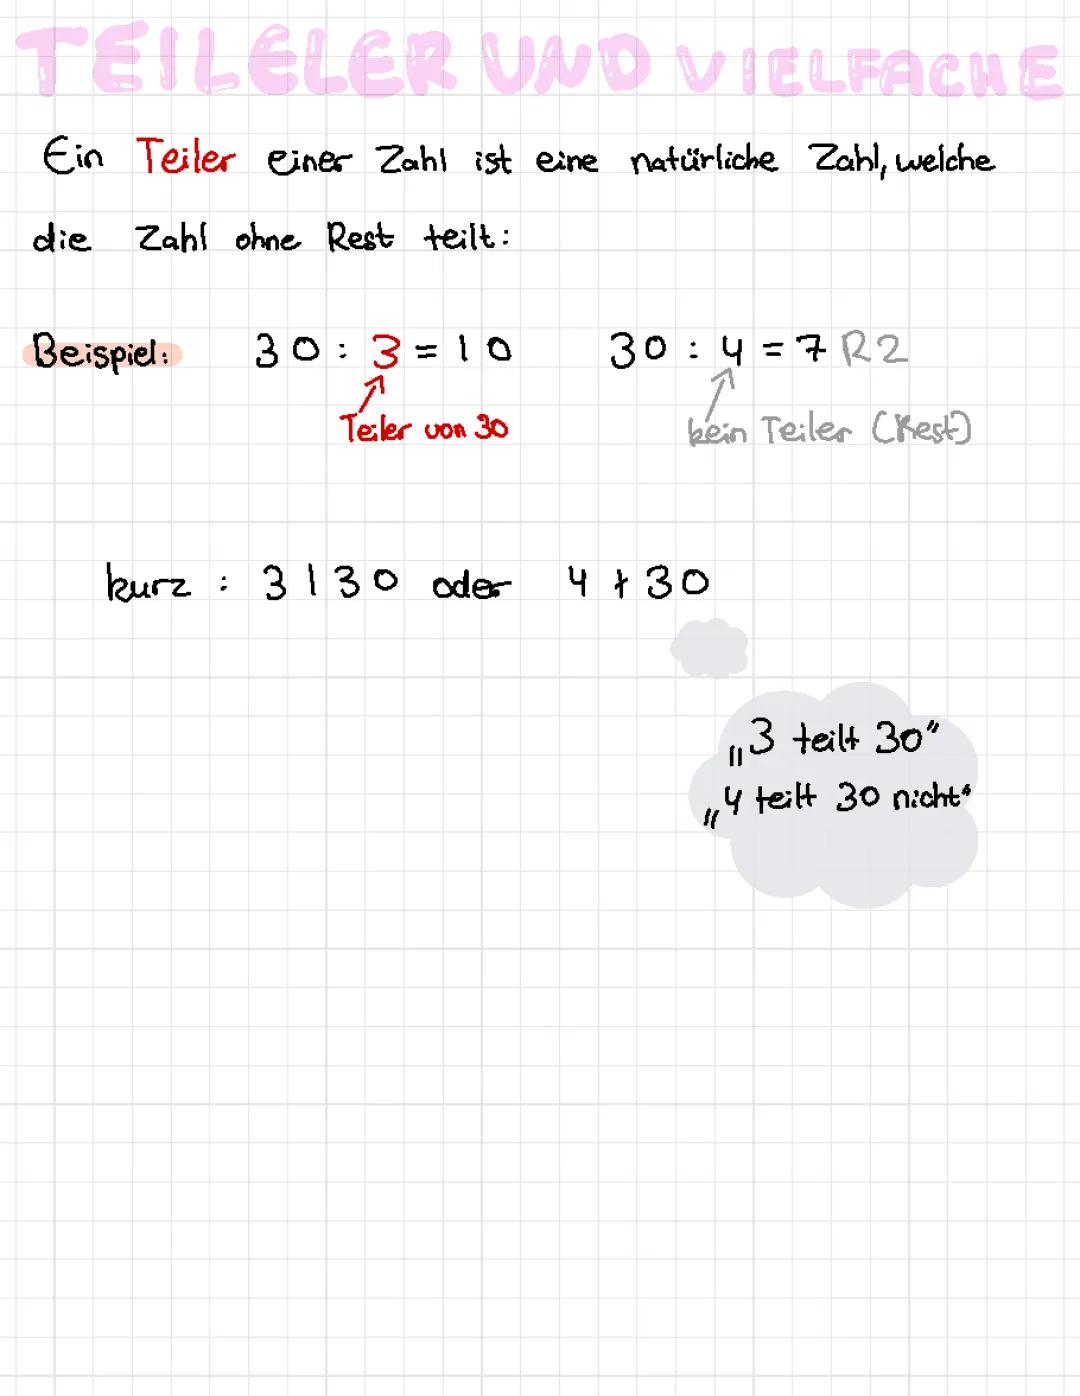 TEILELER UND VIELFACHE
Ein Teiler einer Zahl ist eine natürliche Zahl, welche
die Zahl ohne Rest teilt:
Beispiel: 30 : 3 = 10 30 : 4 = 7 R2
Teiler von 30 kein Teiler (Rest)
kurz : 3 | 30 oder 4 ∤ 30
„3 teilt 30“
„4 teilt 30 nicht“